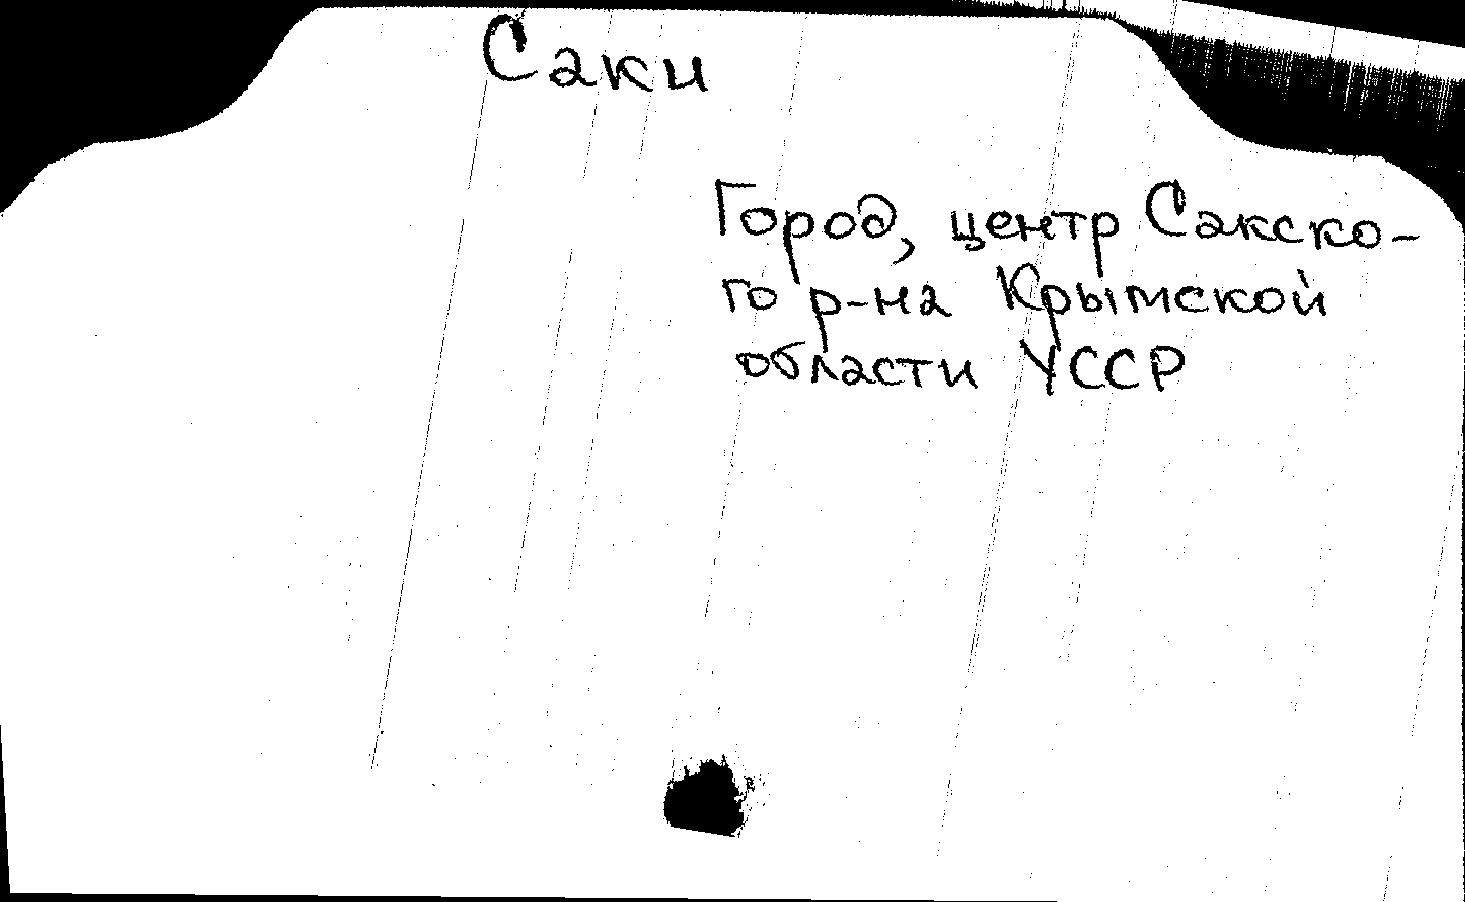 Саки
Город, центр Сакско-
го р-на Крымской
области УССР